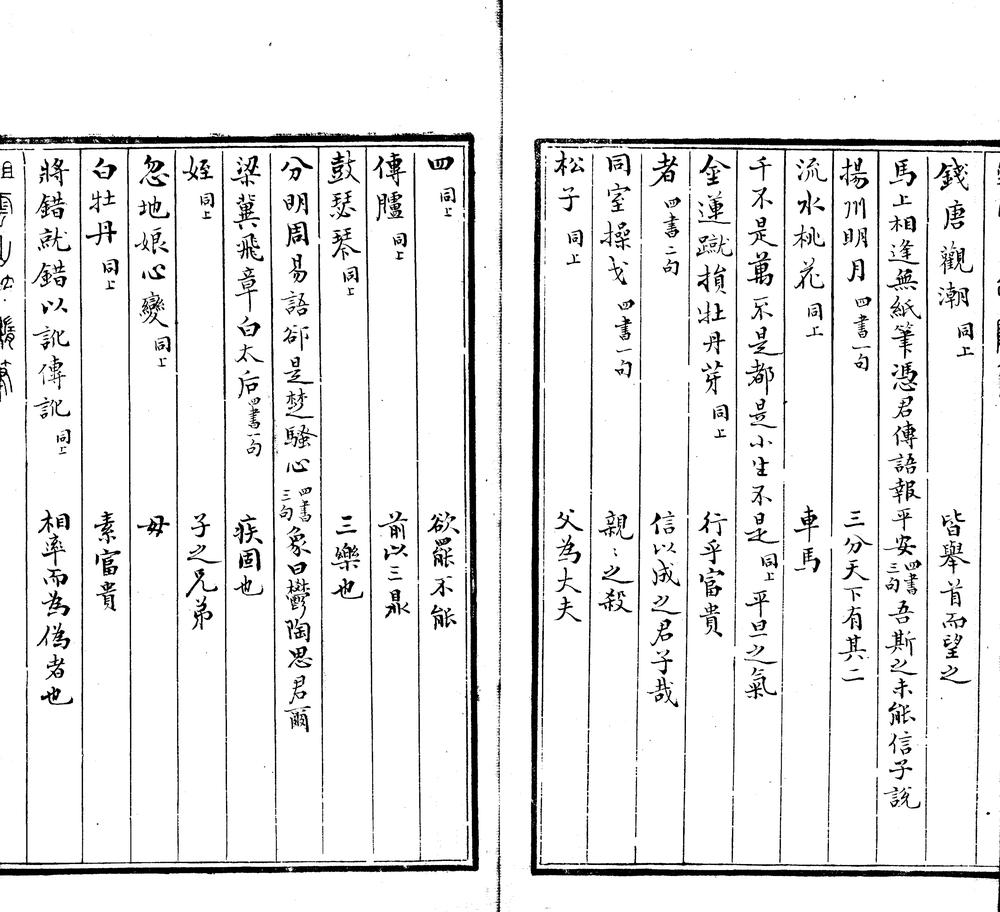 錢唐觀潮 同上 皆舉首而望之
馬上相逢無紙筆憑君傳語報平安 四書三句 吾斯之未能信子說
揚州明月 四書一句 三分天下有其二
流水桃花 同上 車馬
千不是萬不是都是小生不是 同上 平旦之氣
金蓮蹴損牡丹芽 同上 行乎富貴
者 四書二句 信以成之君子哉
同室操戈 四書一句 親〻之殺
松子 同上 父為大夫
四 同上 欲罷不能
傳臚 同上 前以三鼎
鼓瑟琴 同上 三樂也
分明周易語卻是楚騷心 四書三句 象曰鬱陶思君爾
梁冀飛章白太后 四書一句 疾固也
姪 同上 子之兄弟
忽地娘心變 同上 毋
白牡丹 同上 素富貴
將錯就錯以訛傳訛 同上 相率而為偽者也